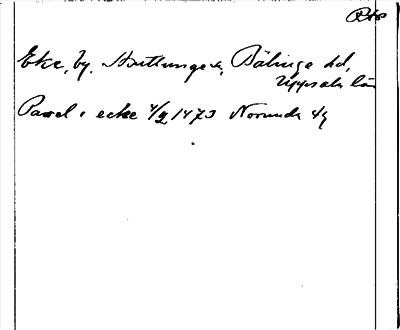 Eke, by. Skuttunge sn, Bälinge hd,
Uppsala län
Pawel i ecke 4/2 1473 Norunda 4